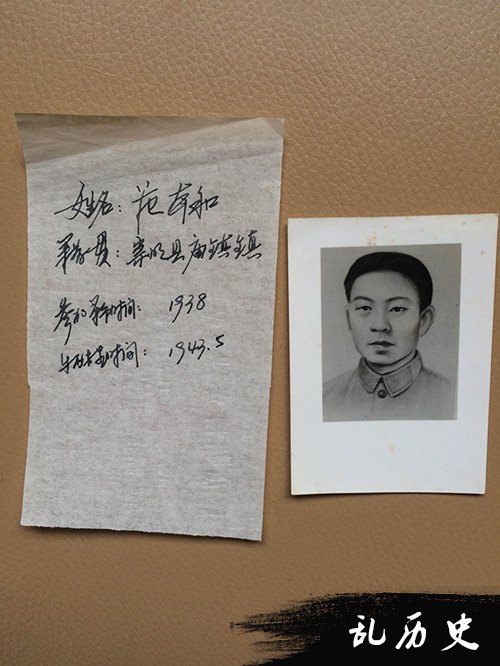 姓名: 范本和
籍贯: 崇明县庙镇镇
参加革命时间: 1938
牺牲时间: 1943.5
乱历史